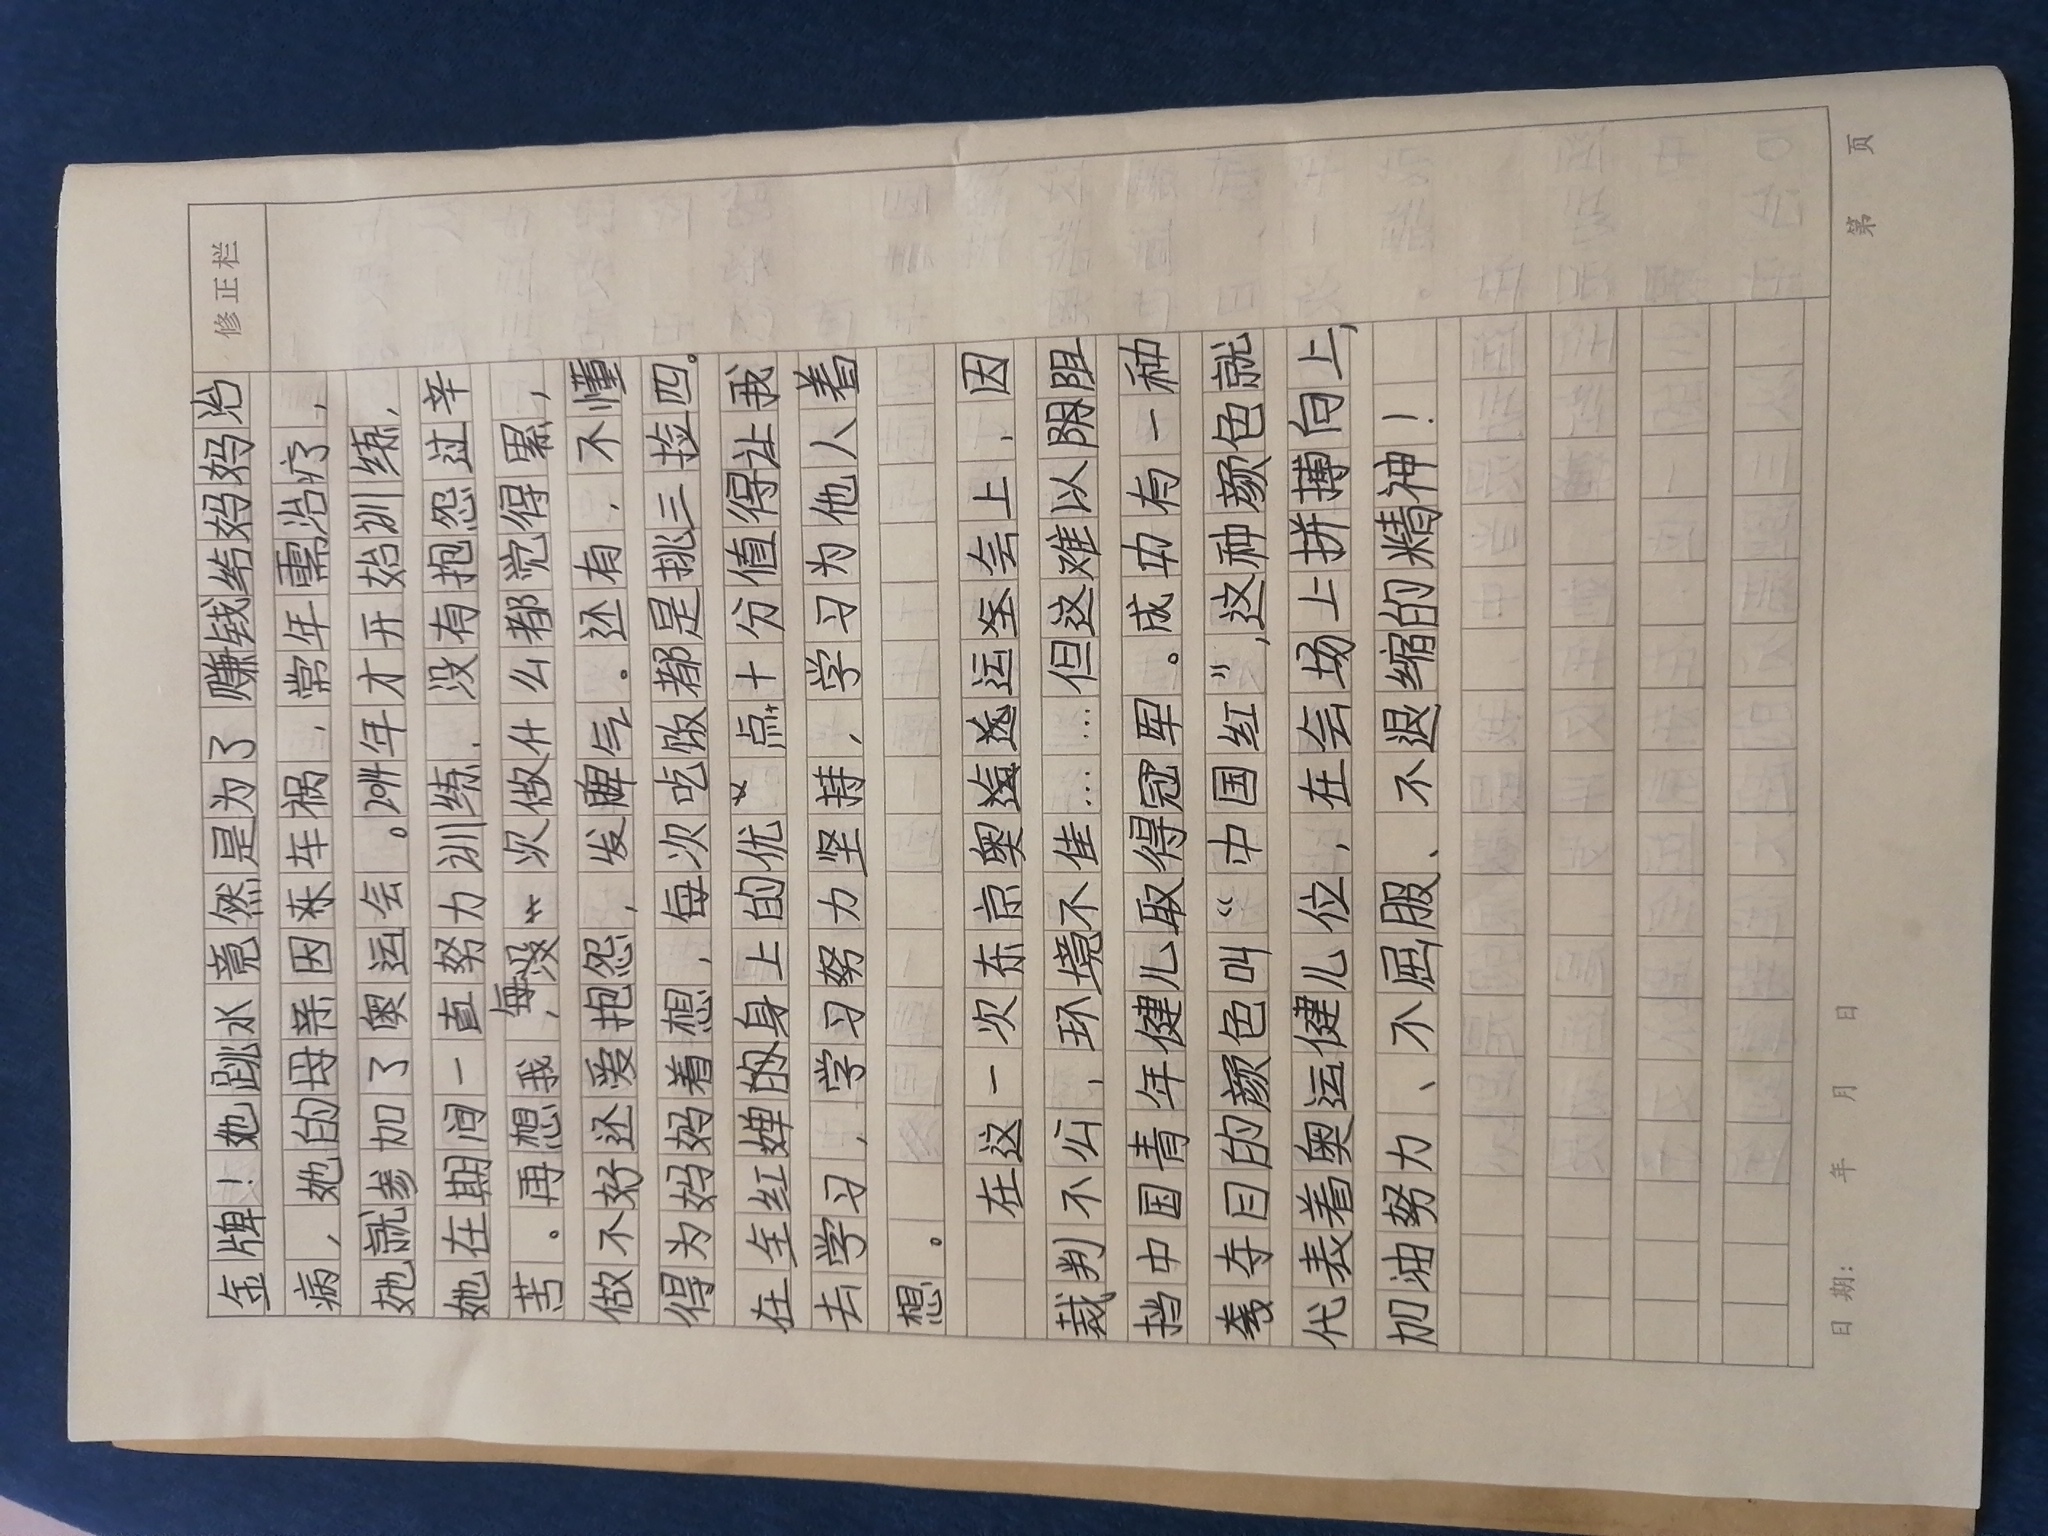 修正栏
金牌！她跳水竟然是为了赚钱给妈妈治
病，她的母亲因来车祸，常年需治疗，
她就参加了奥运会。2014年才开始训练，
她在期间一直努力训练，没有抱怨过辛
苦。再想我，每次做什么都觉得累，
做不好还爱抱怨，发脾气。还有，不懂
得为妈妈着想，每次吃饭都是挑三捡四。
在全红婵的身上的优点十分值得让我
去学习，学习努力坚持，学习为他人着
想。
在这一次东京奥运会上，因
裁判不公，环境不佳……但这难以阻
挡中国青年健儿取得冠军。成功有一种
羲夺目的颜色叫“中国红”，这种颜色就
代表着奥运健儿位，在会场上拼搏向上，
加油努力、不屈服、不退缩的精神！
日期： 年 月 日
第 页